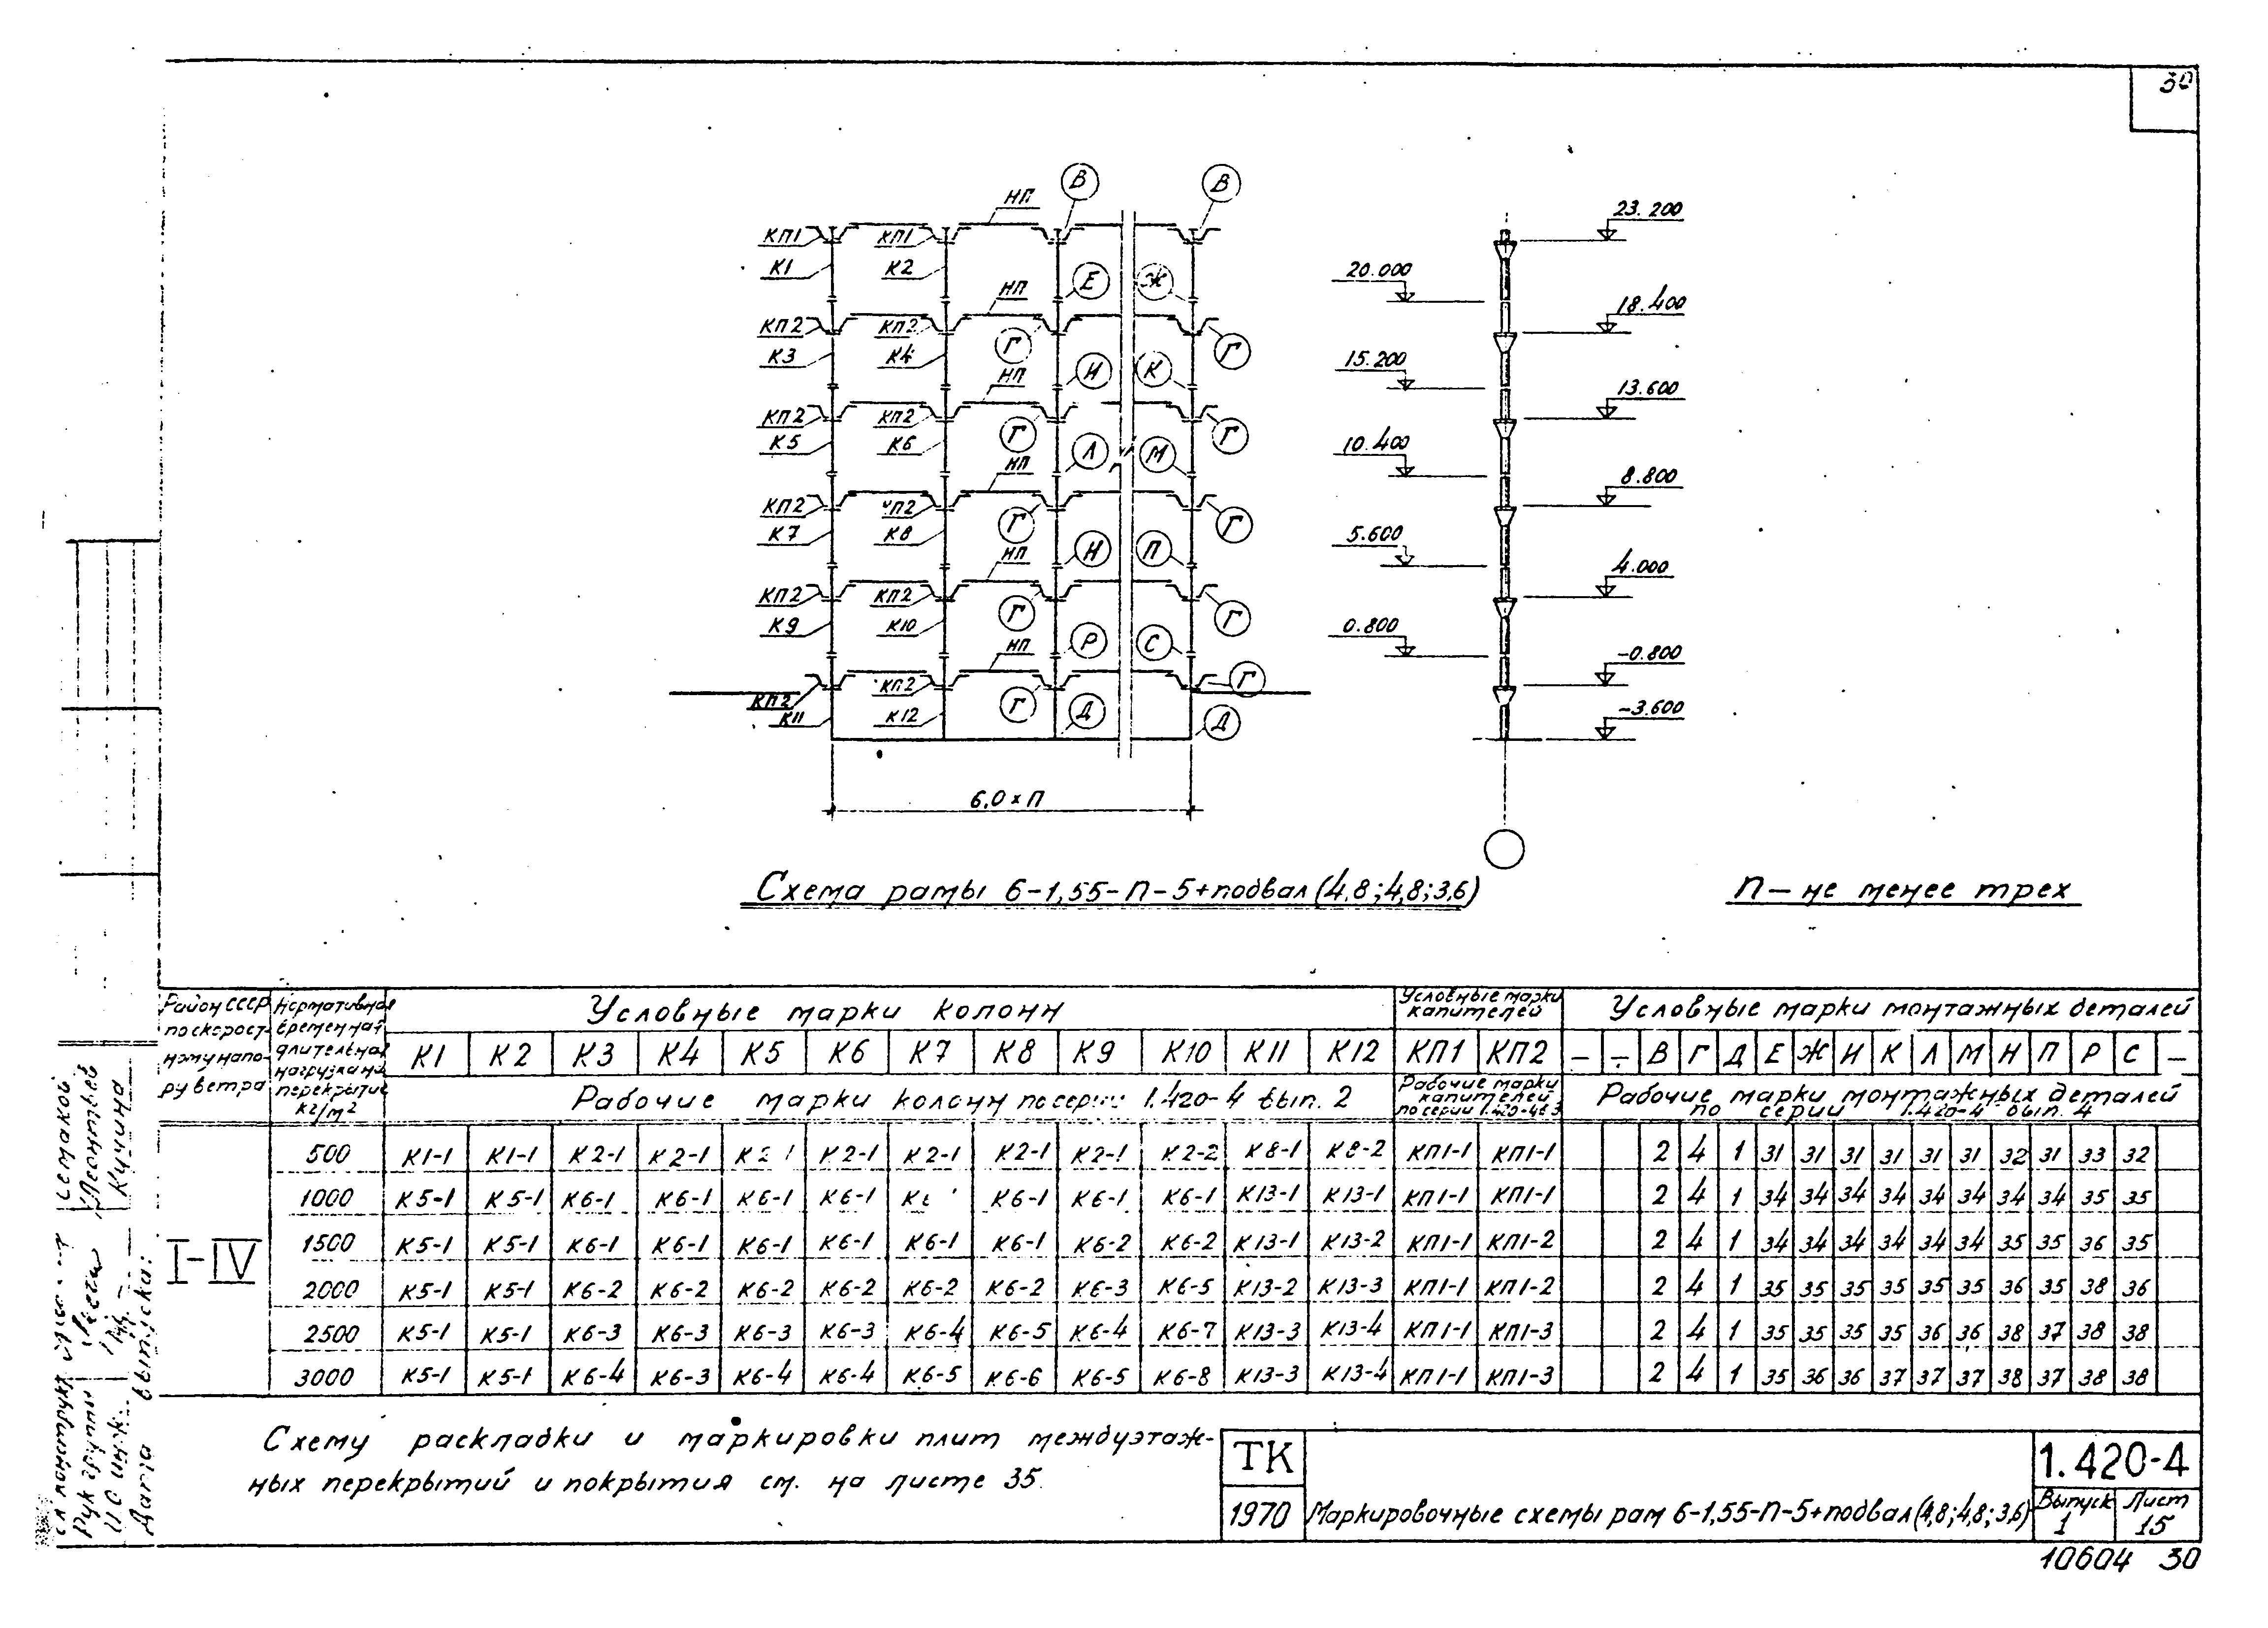 30
НП В В
КП1 КП1
К1 К2 Е Ж
НП
КП2 КП2
К3 К4 Г Г
НП И К
КП2 КП2
К5 К6 Г Г
НП Л М
КП2
К7 К8 Г Г
НП Н П
КП2 КП2
К9 К10 Г Г
НП Р С
КП2 КП2 Г
К11 К12 Г Д Д
6,0 × П
23.200
20.000
18.400
15.200
13.600
10.400
8.800
5.600
4.000
0.800
-0.800
-3.600
Схема рамы 6-1,55-П-5+подвал(4,8;4,8;3,6)
П — не менее трех
Район СССР по скоростному напору ветра
Нормативная временная длительная нагрузка на перекрытие кг/м²
Условные марки колонн
Условные марки капителей
Условные марки монтажных деталей
К1 К2 К3 К4 К5 К6 К7 К8 К9 К10 К11 К12 КП1 КП2 – – В Г Д Е Ж И К Л М Н П Р С –
Рабочие марки колонн по серии 1.420-4 вып. 2
Рабочие марки капителей по серии 1.420-4 в.3
Рабочие марки монтажных деталей по серии 1.420-4 вып. 4
I-IV
500 К1-1 К1-1 К2-1 К2-1 К2-1 К2-1 К2-1 К2-1 К2-2 К8-1 К8-2 КП1-1 КП1-1 2 4 1 31 31 31 31 31 31 32 31 33 32
1000 К5-1 К5-1 К6-1 К6-1 К6-1 К6-1 К6-1 К6-1 К6-1 К13-1 К13-1 КП1-1 КП1-1 2 4 1 34 34 34 34 34 34 34 34 35 35
1500 К5-1 К5-1 К6-1 К6-1 К6-1 К6-1 К6-1 К6-1 К6-2 К6-2 К13-1 К13-2 КП1-1 КП1-2 2 4 1 34 34 34 34 34 34 35 35 36 35
2000 К5-1 К5-1 К6-2 К6-2 К6-2 К6-2 К6-2 К6-2 К6-3 К6-5 К13-2 К13-3 КП1-1 КП1-2 2 4 1 35 35 35 35 35 35 36 35 38 36
2500 К5-1 К5-1 К6-3 К6-3 К6-3 К6-3 К6-4 К6-5 К6-4 К6-7 К13-3 К13-4 КП1-1 КП1-3 2 4 1 35 35 35 35 36 36 38 37 38 38
3000 К5-1 К5-1 К6-4 К6-3 К6-4 К6-4 К6-5 К6-6 К6-5 К6-8 К13-3 К13-4 КП1-1 КП1-3 2 4 1 35 36 36 37 37 37 38 37 38 38
Схему раскладки и маркировки плит междуэтаж-
ных перекрытий и покрытия см. на листе 35.
ТК
1970
Маркировочные схемы рам 6-1,55-П-5+подвал(4,8;4,8;3,6)
1.420-4
Выпуск 1
Лист 15
10604 30
Семаков
Рук группы Леонтьев
Кучина
Дата выпуска: